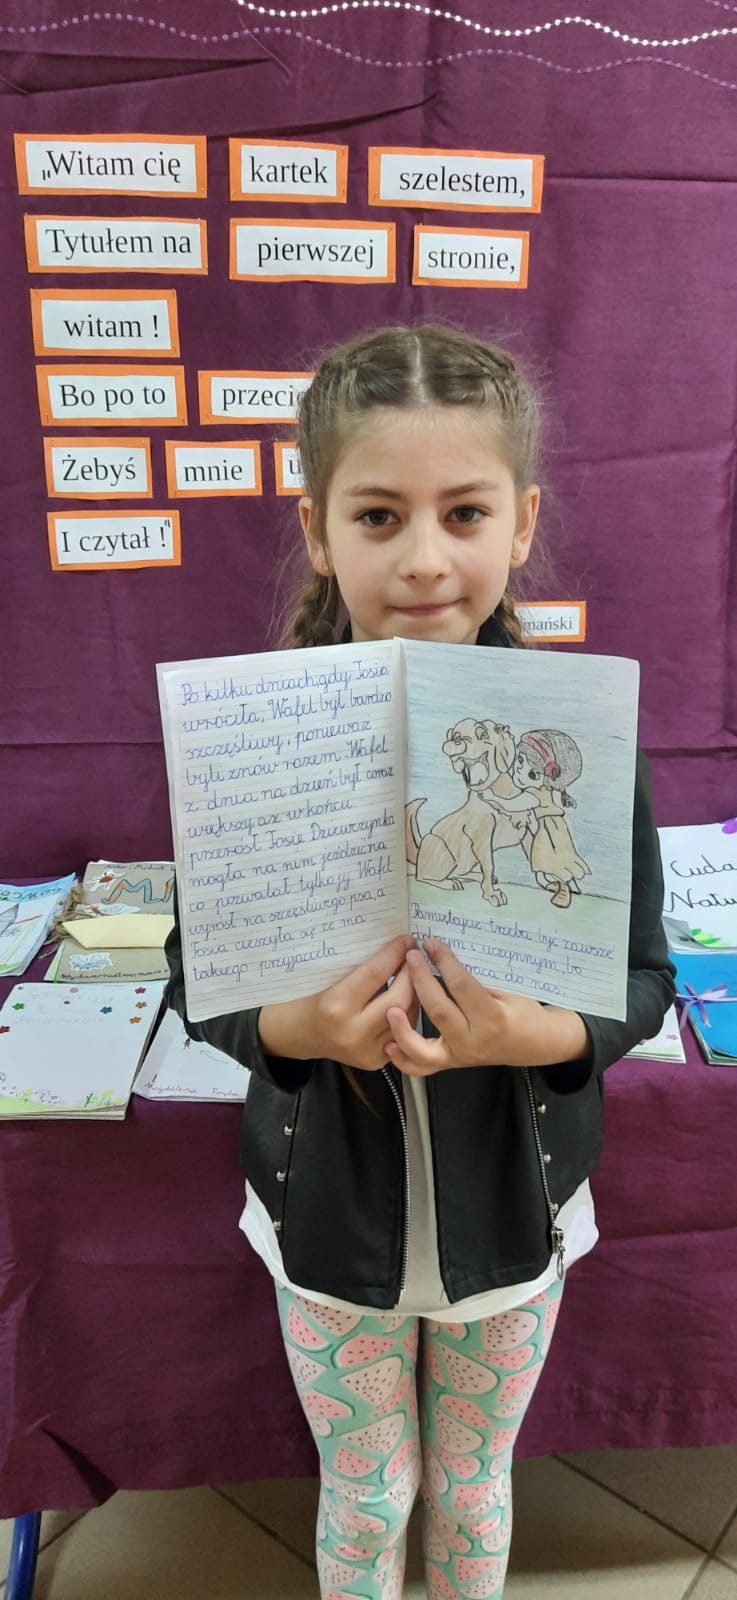 „Witam cię kartek szelestem,
Tytułem na pierwszej stronie,
witam !
Bo po to
Żebyś mnie
I czytał !"
Po kilku dniach, gdy Tosia
wróciła, Wafel był bardzo
szczęśliwy, ponieważ
byli znów razem. Wafel
z dnia na dzień był coraz
większy aż w końcu
przerósł Tosię. Dziewczynka
mogła na nim jeździć na
co pozwalał tylko jej. Wafel
wyrósł na szczęśliwego psa, a
Tosia cieszyła się że ma
takiego przyjaciela.
Pamiętając trzeba być zawsze
dobrym i uczynnym, bo
do nas.
Cuda
Magdalena